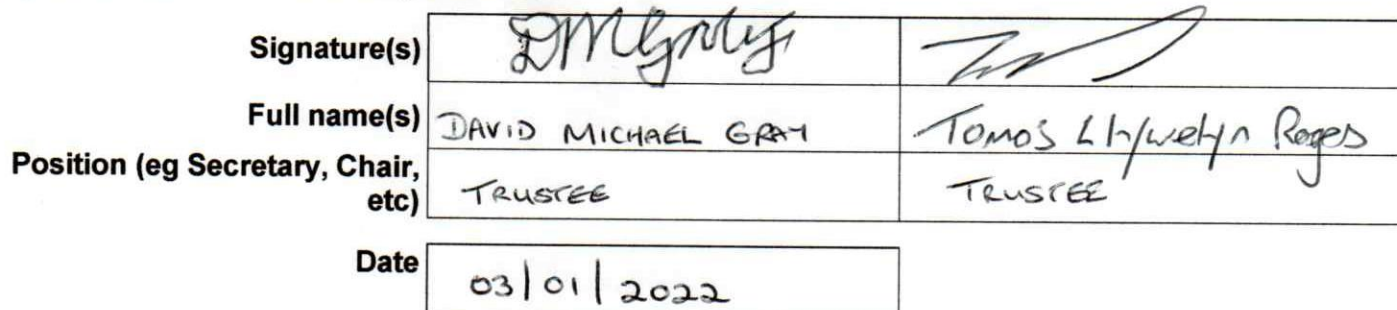 Signature(s)
Full name(s) DAVID MICHAEL GRAY Tomos Llywelyn
Position (eg Secretary, Chair,
etc) TRUSTEE TRUSTEE
Date 03/01/2022